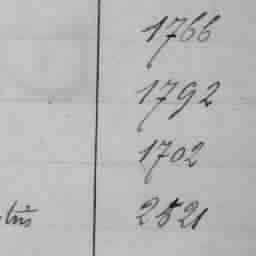 1766
1792
1702
2521